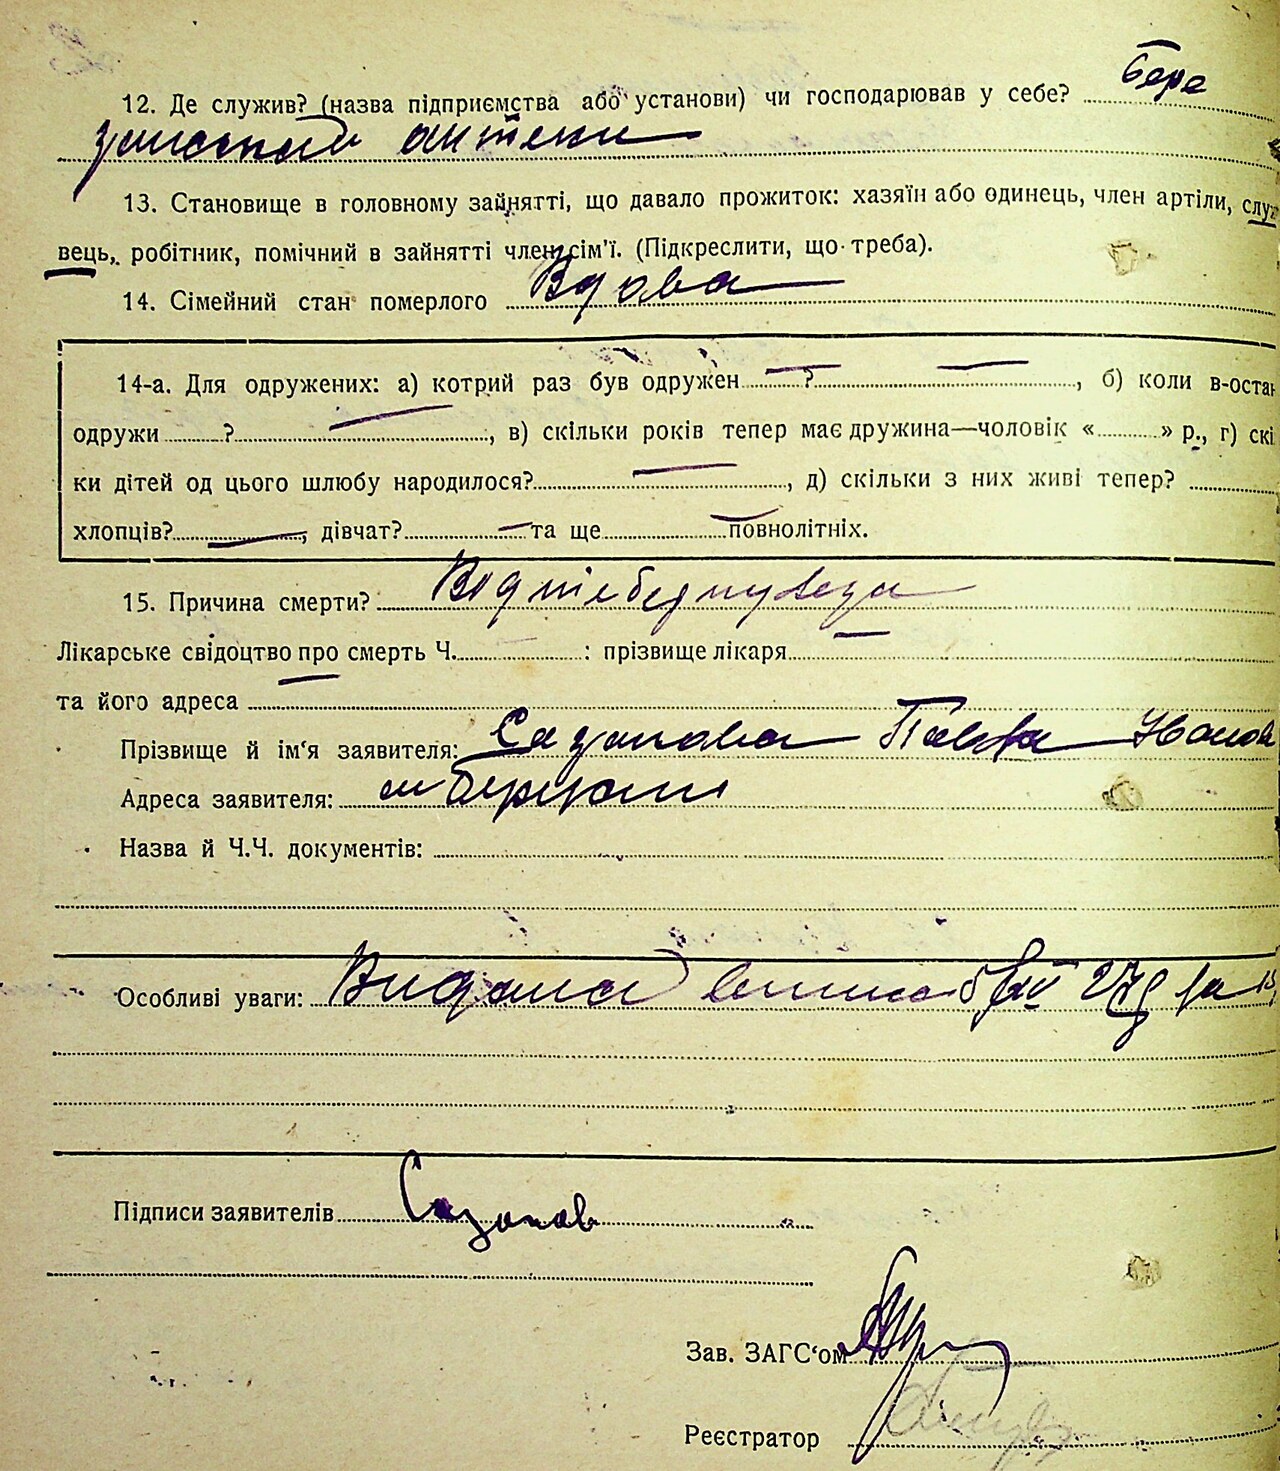 12. Де служив? (назва підприємства або установи) чи господарював у себе? Бере
занський аптеки
13. Становище в головному зайнятті, що давало прожиток: хазяїн або одинець, член артіли, служ
вець, робітник, помічний в зайнятті член сім'ї. (Підкреслити, що треба).
14. Сімейний стан померлого Вдова
14-а. Для одружених: а) котрий раз був одружен ? , б) коли в-остан
одружи ? , в) скільки років тепер має дружина—чоловік « » р., г) скі
ки дітей од цього шлюбу народилося? , д) скільки з них живі тепер?
хлопців? , дівчат? та ще повнолітніх.
15. Причина смерти? Від туберкульоза
Лікарське свідоцтво про смерть Ч. : прізвище лікаря
та його адреса
Прізвище й ім'я заявителя: Сазонова Павла Іванов
Адреса заявителя: м Березані
Назва й Ч.Ч. документів:
Особливі уваги: Видана
Підписи заявителів Сазонов
Зав. ЗАГС'ом
Реєстратор